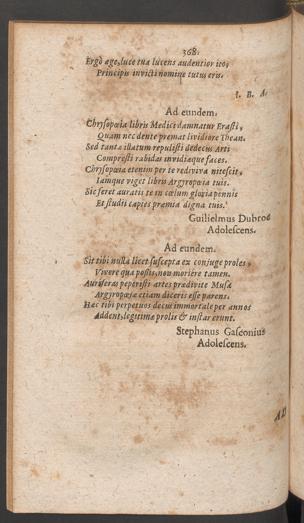 368.
Ergò age, luce tua lucens audentior ito,
Principis invicti nomine tutus eris.
I. B. A.
Ad eundem.
Chrysopœia libris Medici damnatur Erasti,
Quam nec dente premat lividiore Theon.
Sed tanta illatum repulisti dedecus Arti
Compresti rabidas invidiæque faces.
Chrysopœia etenim per te rediviva nitescit,
Iamque viget libris Argyropœia tuis.
Sic feret auratis te in cœlum gloria pennis
Et studii capies præmia digna tui.
Guilielmus Dubroe
Adolescens.
Ad eundem.
Sit tibi nulla licet suscepta ex conjuge proles,
Vivere qua possis, non moriére tamen.
Auriferas peperisti artes prædivite Musâ
Argyropœiæ etiam diceris esse parens.
Hæc tibi perpetuos decus immortale per annos
Addent, legitimæ prolis & instar erunt.
Stephanus Gasconius
Adolescens.
AD